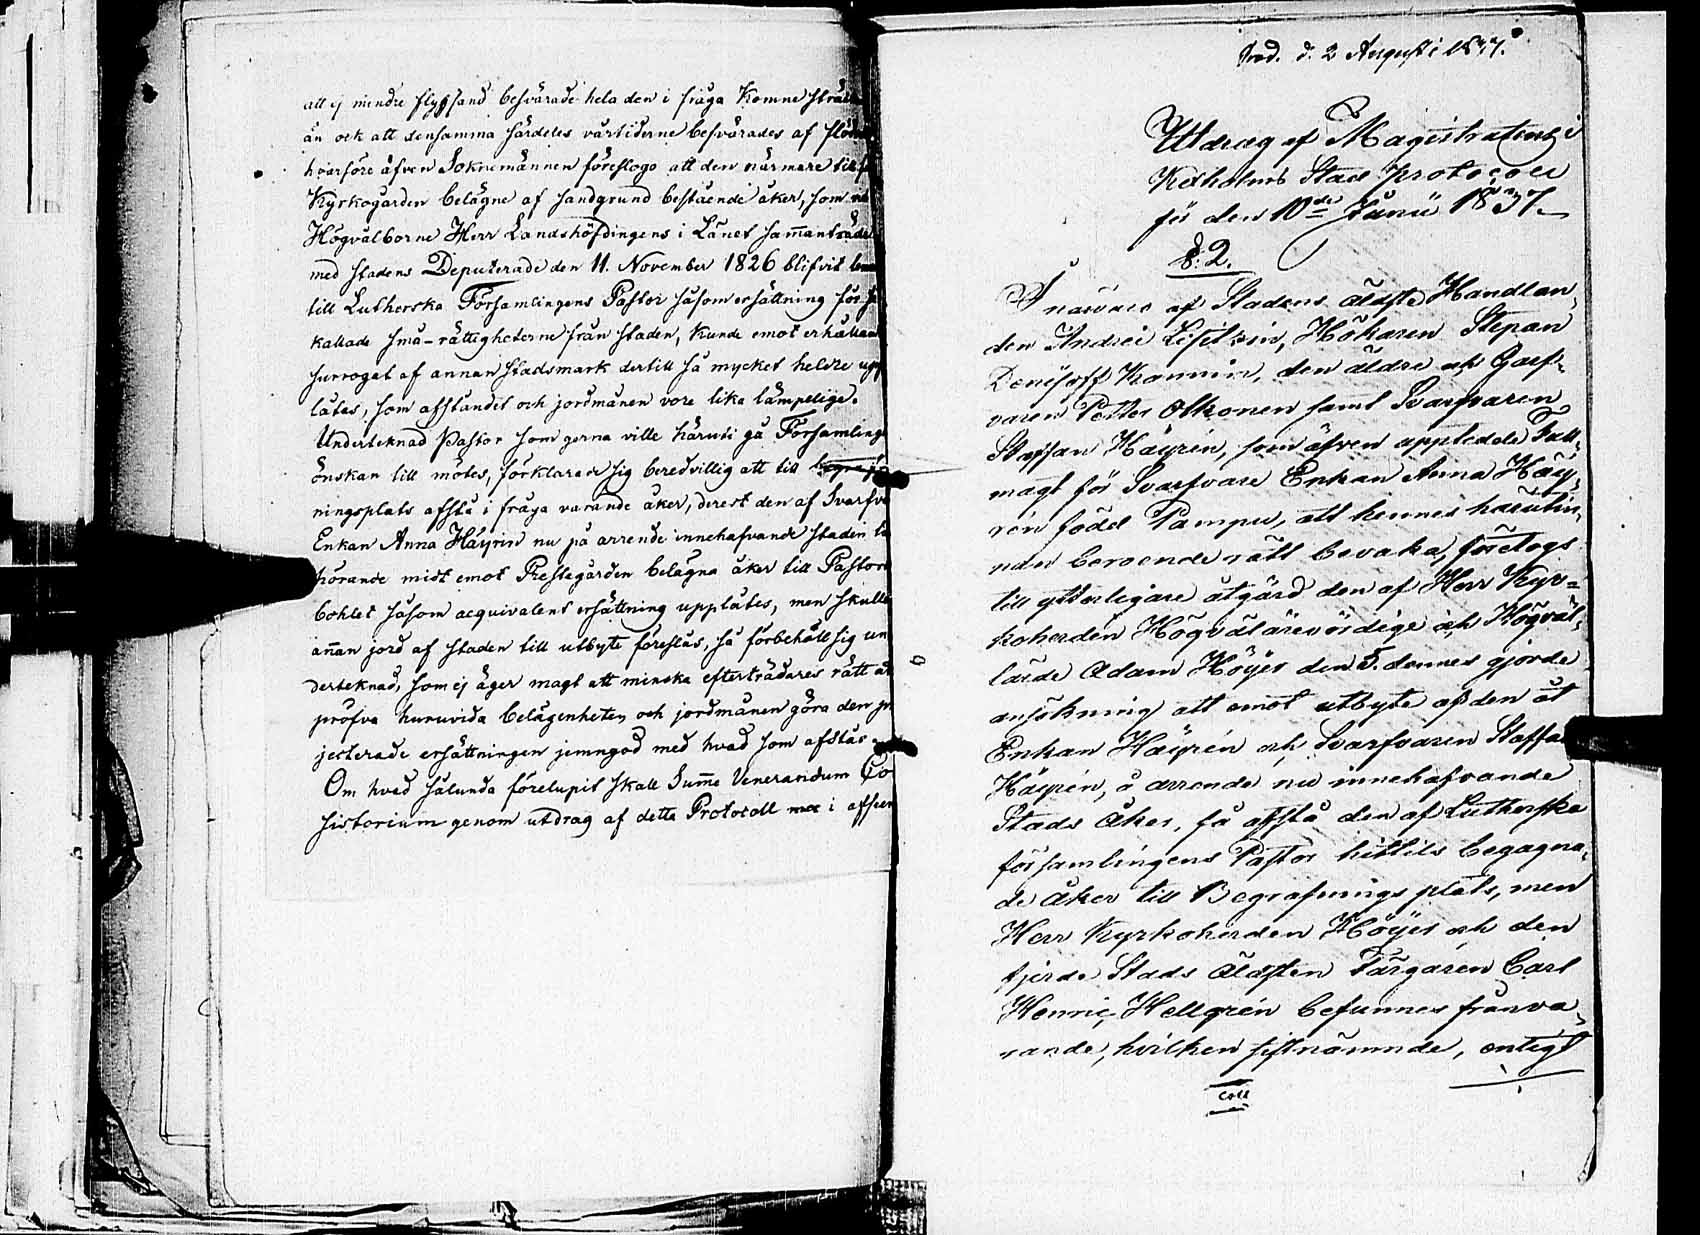 att ej mindre flygsand besvärade hela den i fråga Komne
än ock att densamma särdeles vårtiderne besvärades af
hvarföre äfven Soknemännen föreslogo att den närmare till
Kyrkogården belägne af sandgrund bestående åker, som
Högvälborne Herr Landshöfdingens i Länet samanträde
med stadens Deputerade den 11. November 1826 blifvit
till Lutherska Församlingens Pastor såsom ersättning för
kallade små-rättigheterne från staden, kunde emot erhållande
surrogat af annan stadsmark dertill så mycket heldre upp
låtas, som afståndet och jordmånen vore lika lämpelige.
Undertecknad Pastor som gerna ville häruti gå Församlings
önskan till mötes, förklarade sig beredvillig att till
ningsplats afstå i fråga varande åker, derest den af Svarfva
Enkan Anna Häyrin nu på arrende innehafvande staden
hörande midt emot Prestegården belägna åker till Pastors
bohlet såsom aequivalent ersättning upplåtes, men skulle
annan jord af staden till utbyte föreslås, så förbehåll sig un
derteknad, som ej äger magt att minska efterträdares rätt at
pröfva huruvida belägenheten och jordmånen göra den pro
jecterade ersättningen jemngod med hvad som afstås.
Om hvad sålunda förelupit skall Summe Venerandum Con
sistorium genom utdrag af detta Protocoll i afseen
Ind. d. 2 Augusti 1837.
Utdrag af Magistratens i
Kexholms Stad protocoll
för den 10de Junii 1837.
§: 2.
I närvaro af Stadens äldste Handlan,
den Andrei Lisitzin, Hökaren Stepan
Denisoff Kannin, den äldre och Garf-
varen Petter Olkonen samt Svarfvaren
Staffan Häyrén, som äfven uppledde Full,
magt för Svarfvare Enkan Anna Häy,
rén född Pampu, att hennes härutin,
nan beroende rätt bevaka, företogs
till ytterligare åtgärd den af Herr Kyr-
koherden Högvälärevördige och Högväl,
lärde Adam Höyer den 5. dennes gjorde
ansökning att emot utbyte af den åt
Enkan Häyrén och Svarfvaren Staffan
Häyrén, å arrende nu innehafvande
Stads åker, få afstå den af Lutherska
församlingens Pastor hittils begagna,
de åker till Begrafnings plats, men
Herr Kyrkoherden Höyer och den
fjerde Stads äldsten Färgaren Carl
Henric Hellgrén befunnes frånva,
rande, hvilken sistnämnde, enligt
Coll